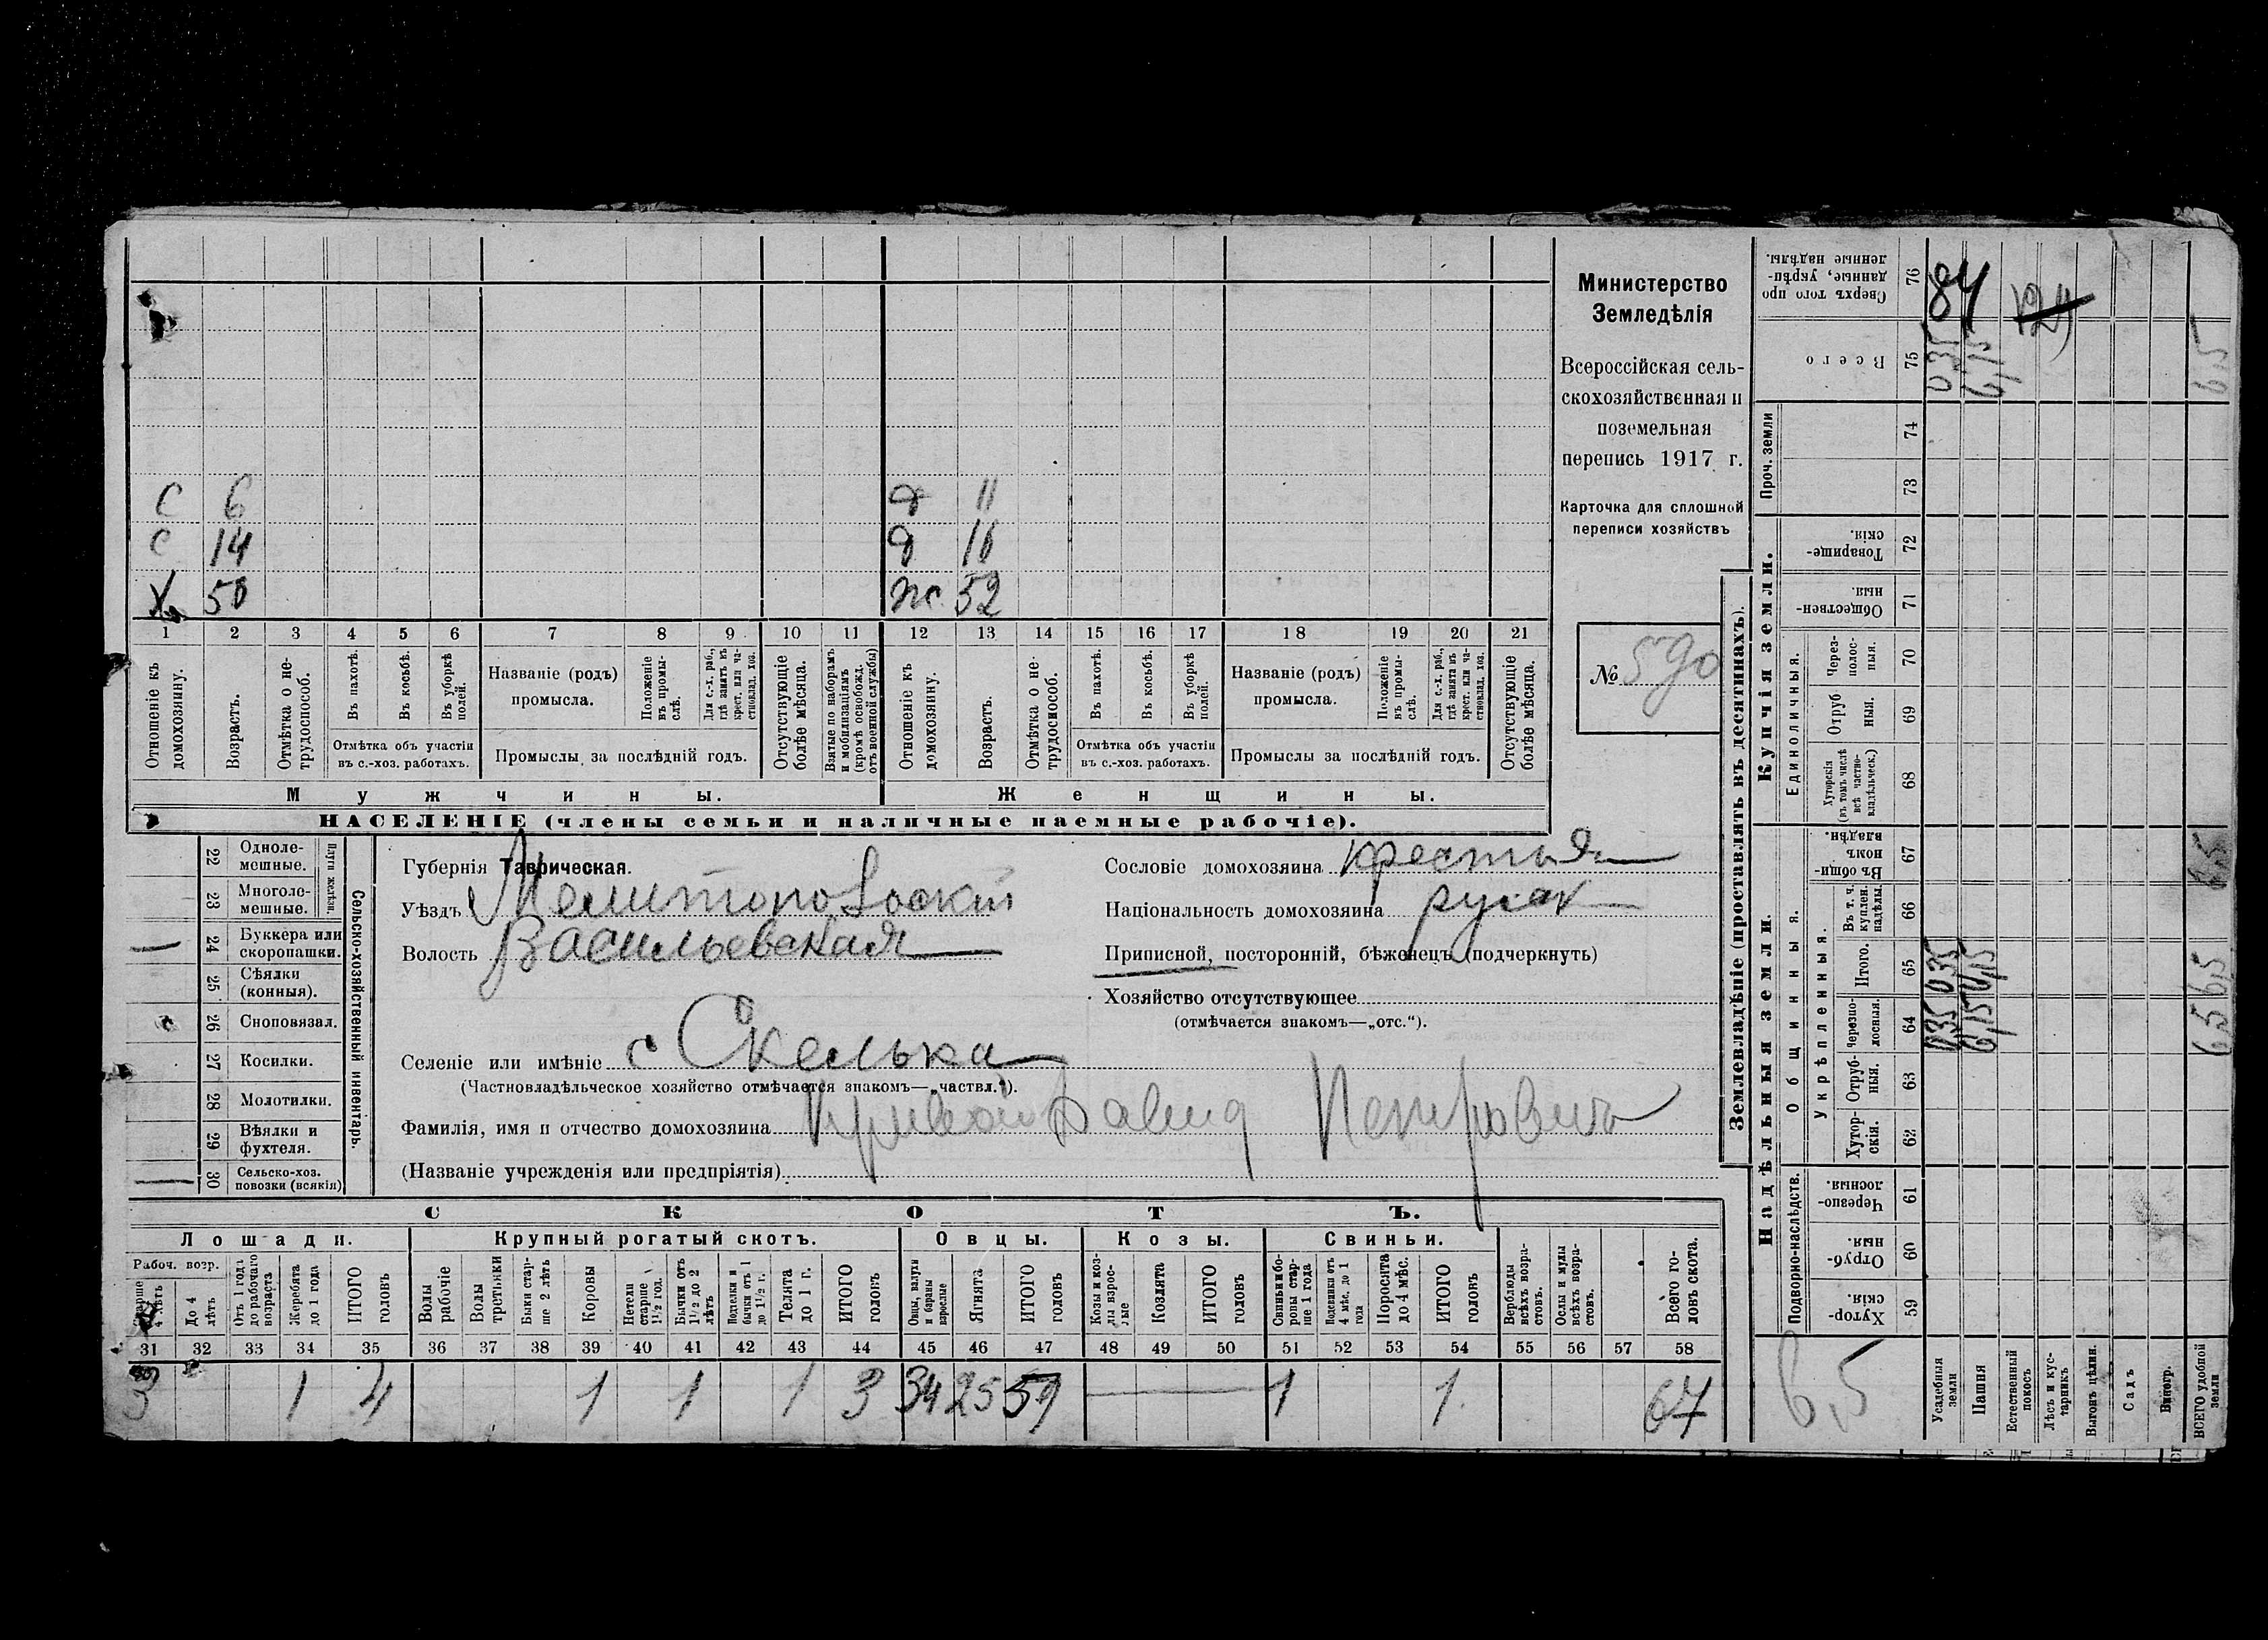 Министерство
Земледѣлія
Всероссійская сель-
скохозяйственная и
поземельная
перепись 1917 г.
Карточка для сплошной
переписи хозяйствъ
№ 590
С 6 д 11
С 14 д 16
Х 50 ж 52
1 2 3 4 5 6 7 8 9 10 11 12 13 14 15 16 17 18 19 20 21
Отношеніе къ домохозяину.
Возрастъ.
Отмѣтка о не-трудоспособ.
Въ пахотѣ.
Въ косьбѣ.
Въ уборкѣ полей.
Отмѣтка объ участіи
въ с.-хоз. работахъ.
Названіе (родъ)
промысла.
Положеніе въ промы-слѣ.
Для с.-х. раб., гдѣ занятъ въ крест. или ча-стновлад. хоз.
Промыслы за послѣдній годъ.
Отсутствующіе болѣе мѣсяца.
Взятые по наборамъ и мобилизаціямъ (кромѣ освобожд. отъ военной службы)
Отношеніе къ домохозяину.
Возрастъ.
Отмѣтка о не-трудоспособ.
Въ пахотѣ.
Въ косьбѣ.
Въ уборкѣ полей.
Отмѣтка объ участіи
въ с.-хоз. работахъ.
Названіе (родъ)
промысла.
Положеніе въ промы-слѣ.
Для с.-х. раб., гдѣ занята въ крест. или ча-стновлад. хоз.
Промыслы за послѣдній годъ.
Отсутствующіе болѣе мѣсяца.
Мужчины. Женщины.
НАСЕЛЕНІЕ (члены семьи и наличные наемные рабочіе).
Сельско-хозяйственный инвентарь.
Плуги желѣзн.
22 Одноле-
мешные.
23 Многоле-
мешные.
24 Буккера или
скоропашки.
25 Сѣялки
(конныя).
26 Сноповязал.
27 Косилки.
28 Молотилки.
29 Вѣялки и
фухтеля.
30 Сельско-хоз.
повозки (всякія)
Губернія Таврическая.
Уѣздъ Мелитопольскій
Волость Васильевская
Селеніе или имѣніе с Скелька
(Частновладѣльческое хозяйство отмѣчается знакомъ—„частвл.“).
Фамилія, имя и отчество домохозяина Кривой Давид Петрович
(Названіе учрежденія или предпріятія)
Сословіе домохозяина крестья
Національность домохозяина русск
Приписной, посторонній, бѣженецъ (подчеркнуть)
Хозяйство отсутствующее
(отмѣчается знакомъ—„отс.“).
СКОТЪ.
Лошади. Крупный рогатый скотъ. Овцы. Козы. Свиньи.
Рабоч. возр.
Старше 4 лѣтъ
До 4 лѣтъ
Отъ 1 года до рабочаго возраста
Жеребята до 1 года
ИТОГО головъ
Волы рабочіе
Волы третьяки
Быки стар-ше 2 лѣтъ
Коровы
Нетели старше 1½ год.
Бычки отъ 1½ до 2 лѣтъ
Подтелки и бычки отъ 1 до 1½ г.
Телята до 1 г.
ИТОГО головъ
Овцы, валухи и бараны взрослые
Ягнята
ИТОГО головъ
Козы и коз-лы взрос-лые
Козлята
ИТОГО головъ
Свиньи и бо-ровы стар-ше 1 года
Подсвинки отъ 4 мѣс. до 1 года
Поросята до 4 мѣс.
ИТОГО головъ
Верблюды всѣхъ возра-стовъ.
Ослы и мулы всѣхъ возра-стовъ.
Всего го-ловъ скота.
31 32 33 34 35 36 37 38 39 40 41 42 43 44 45 46 47 48 49 50 51 52 53 54 55 56 57 58
3 1 4 1 1 1 3 34 25 59 1 1 67
Землевладѣніе (проставлять въ десятинахъ).
Надѣльныя земли.
Купчія земли.
Проч. земли
Подворно-наслѣдств.
Общинныя.
Укрѣпленныя.
Единоличныя.
59 Хутор-скія.
60 Отруб-ныя.
61 Черезпо-лосныя.
62 Хутор-скія.
63 Отруб-ныя.
64 Черезпо-лосныя.
65 Итого.
66 Въ т. ч. куплен. надѣлы.
67 Въ общи-номъ владѣн.
68 Хуторскія (въ томъ числѣ всѣ частно-владѣльческ.)
69 Отруб ныя.
70 Через-полос-ныя.
71 Обществен-ныя.
72 Товарище-скія.
73
74
75 Всего
76 Сверхъ того про данные, укрѣп-ленные надѣлы.
Усадебныя земли 0,35 0,35 0,35 84
Пашня 6,15 6,15 6,15
Естественный покосъ
Лѣсъ и кус-тарникъ
Выгонъ цѣлин.
Садъ
Виногр.
ВСЕГО удобной земли 6,5 6,5 6,5 6,5
6,5